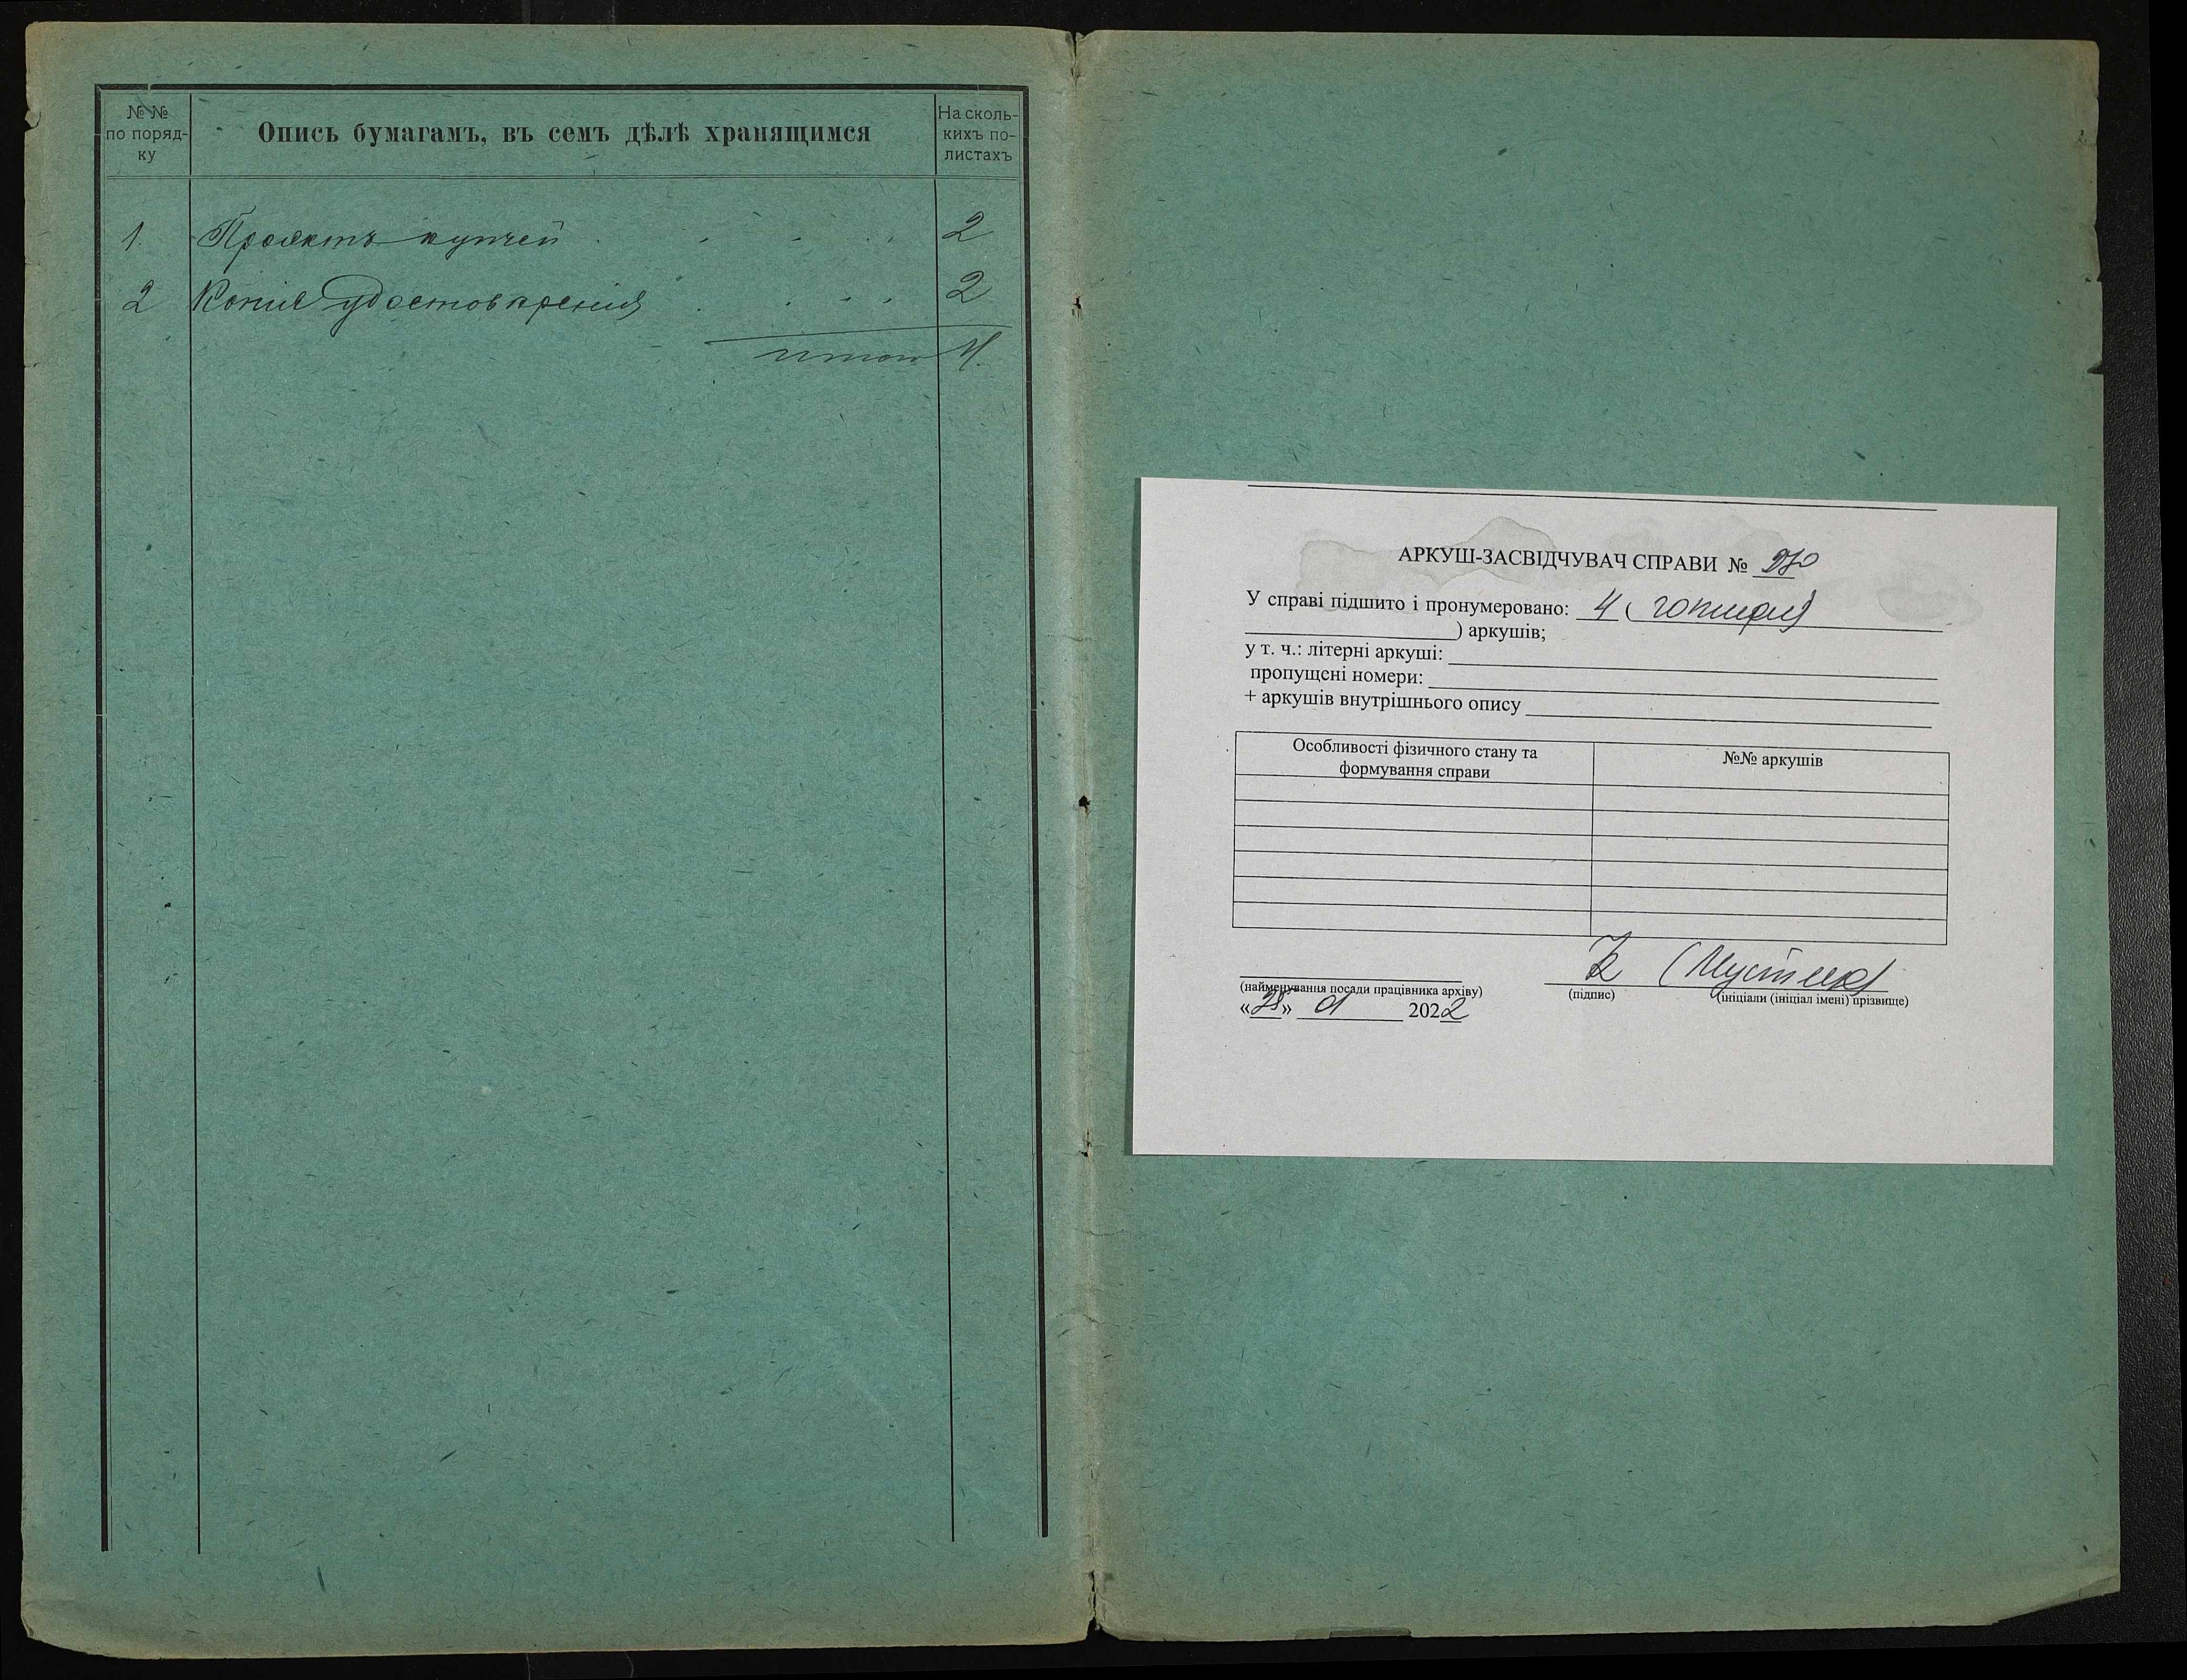 № №
по поряд-
ку
Опись бумагамъ, въ семъ дѣлѣ хранящимся
На сколь-
кихъ по-
листахъ
1. Проектъ купчей . . . . . 2
2 Копія удостовѣренія . . . . 2
итого 4.
АРКУШ-ЗАСВІДЧУВАЧ СПРАВИ №
У справі підшито і пронумеровано: 4 ( чотири)
) аркушів;
у т. ч.: літерні аркуші:
пропущені номери:
+ аркушів внутрішнього опису
Особливості фізичного стану та
формування справи
№№ аркушів
(найменування посади працівника архіву)
(підпис)
(ініціали (ініціал імені) прізвище)
« » 2022